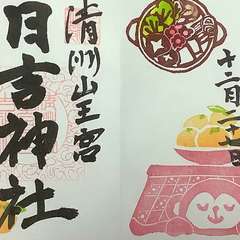 十二月二十七日
清洲山王宮
日吉神社